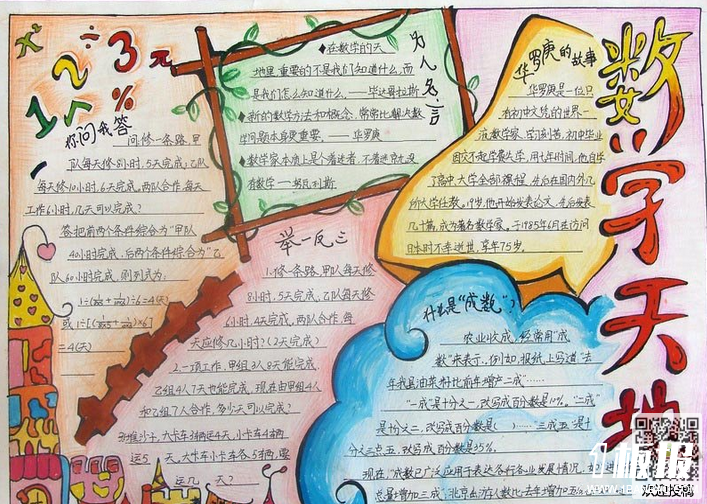 数学天地
1 2 3 元
÷
%
你问我答
问修一条路，甲
队每天修8小时，5天完成；乙队
每天修10小时，6天完成，两队合作，每天
工作6小时，几天可以完成？
答把前两个条件综合为“甲队
40小时完成，后两个条件综合“乙
队60小时完成，则列式为：
=4(天)
为人名言
在数学的天
地里，重要的不是我们知道什么，而
是我们怎么知道什么。——毕达哥拉斯
新的数学方法和概念，常常比解决数
学问题本身更重要。——华罗庚
数学家本质上是个着迷者，不着迷就没
有数学——努瓦利斯
举一反三
1.修一条路，甲队每天修
8小时，5天完成，乙队每天修
6小时，4天完成，两队合作，每
天应修几小时？(2天完成)
2.一项工作，甲组3人8天能完成
乙组4人7天也能完成，现在由甲组4人
和乙组7人合作，多少天可以完成？
沙，大卡车3辆运4天，小卡车4辆
运5天，大卡车小卡车各5辆，要
运几天？
华罗庚的故事
华罗庚是一位只
有初中文凭的世界一
流数学家，学习刻苦，初中毕业
因交不起学费失学，用七年时间，他自学
了高中、大学全部课程，先后在国内外几
所大学任教，19岁，他开始发表论文，先后发表
几十篇，成为著名数学家。于1985年6月去访问
日本时不幸逝世，享年75岁。
什么是“成数”？
农业收成，经常用“成
数”来表示。例如，报纸上写道“去
年我省油菜籽比前年增产二成”……
“一成”是十分之一，改写成百分数是10%。“二成”
是十分之二，改写成百分数是（ ）……三成五是十
分之三点五，改写成百分数是35%。
现在，“成数”已广泛应用于表达各行各业发展情况，
总量增加三成”，北京出